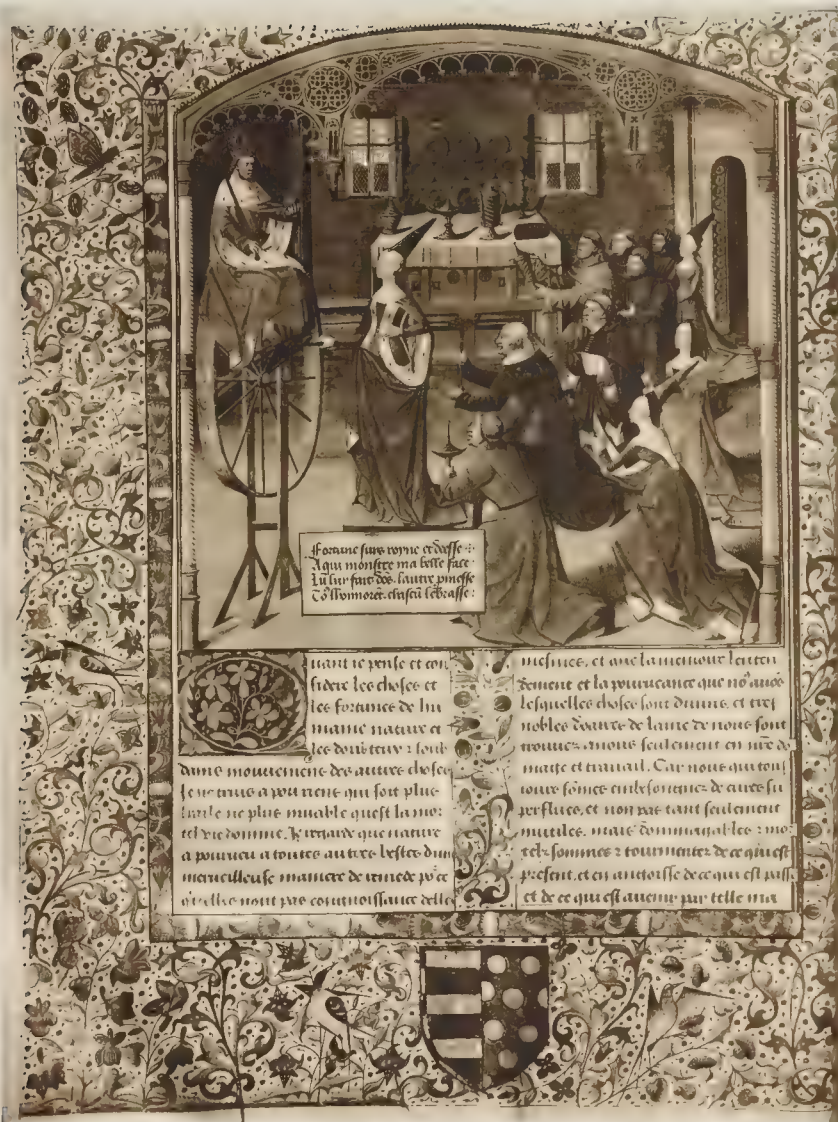 Fortune suis royne et deesse
A qui monstre ma belle face
Lu lui fait dos. lautre
To9 honnoret. chascu lebrasse
uant ie pense et con
sidere les choses et
les fortunes de hu
maine nature et
les doubteux z soub
dains mouuemens des autres choses
Je ne truis a pou riens qui soit plus
fraile ne plus muable quest la mor
tel vie domme. Je regarde que nature
a pourueu a toutes autres bestes dun
merueilleuse maniere de remede po9 ce
quelles nont pas congnoissance delles
mesmes, et que la memoire lenten
dement et la pourueance que no9 auos
lesquelles choses sont diuins, et tres
nobles de lame de nous sont
trouuez a nous seulement en nre do
maige et trauail. Car nous qui tous
iours somes embesongniez de cures su
perflues, et non pas tant seulement
inutiles, mais dommagables z mor
telz sommes z tourmentez de ce qui est
present, et en angoisse de ce qui est passe
et de ce qui est auenir par telle ma